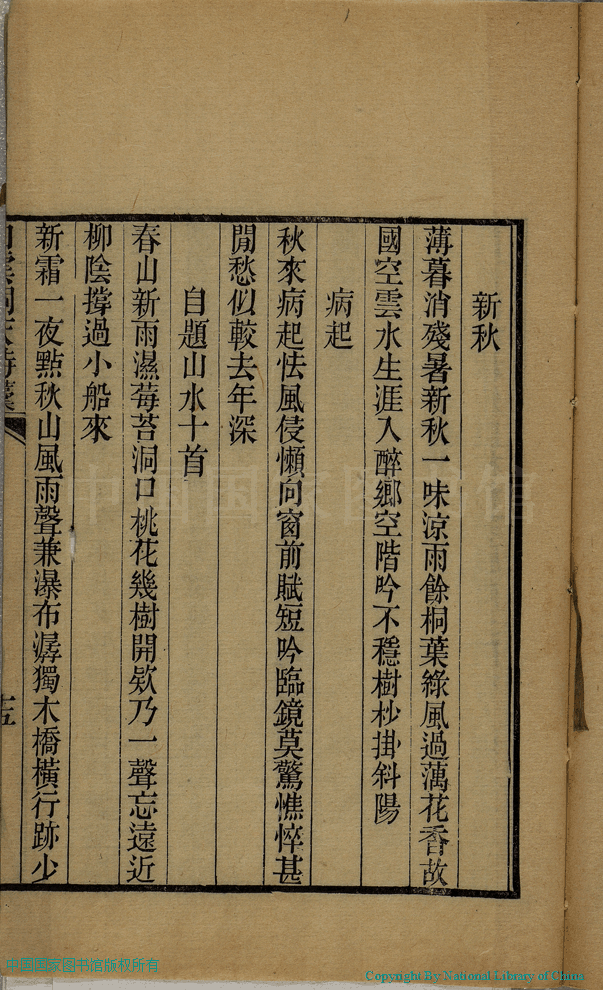 新秋
薄暮消殘暑新秋一味涼雨餘桐葉綠風過藕花香故
國空雲水生涯入醉鄉空階吟不穩樹杪掛斜陽
病起
秋來病起怯風侵懶向窗前賦短吟臨鏡莫驚憔悴甚
閒愁似較去年深
自題山水十首
春山新雨濕莓苔洞口桃花幾樹開欵乃一聲忘遠近
柳陰撐過小船來
新霜一夜點秋山風雨聲兼瀑布潺獨木橋橫行跡少
中国国家图书馆
中国国家图书馆版权所有
Copyright By National Library of China